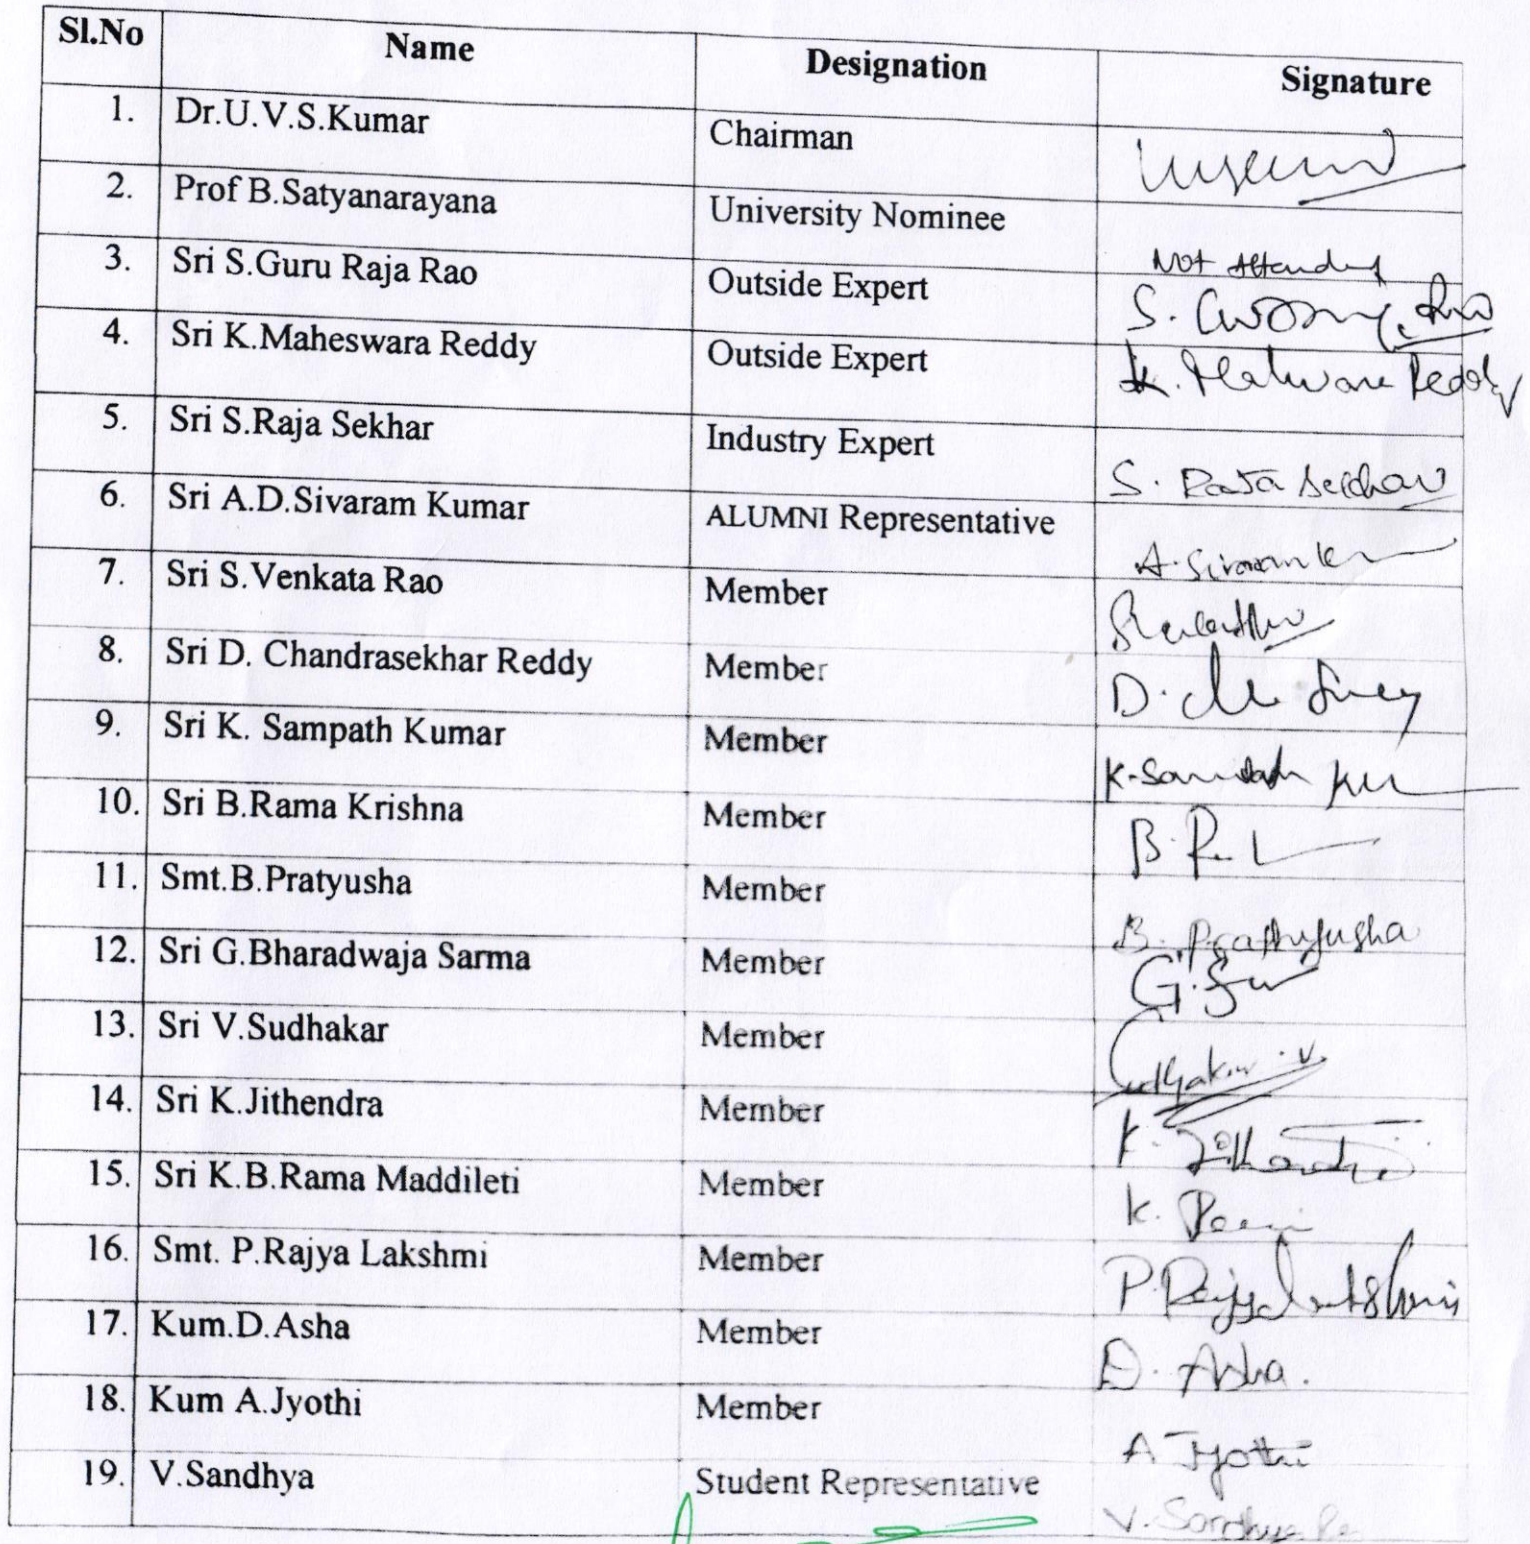 Sl.No Name Designation Signature
1. Dr.U.V.S.Kumar Chairman
2. Prof B.Satyanarayana University Nominee Not Attended
3. Sri S.Guru Raja Rao Outside Expert S.
4. Sri K.Maheswara Reddy Outside Expert K. Reddy
5. Sri S.Raja Sekhar Industry Expert S. Raja Sekhar
6. Sri A.D.Sivaram Kumar ALUMNI Representative A.
7. Sri S.Venkata Rao Member
8. Sri D. Chandrasekhar Reddy Member D.
9. Sri K. Sampath Kumar Member K.
10. Sri B.Rama Krishna Member B.
11. Smt.B.Pratyusha Member B. Prathyusha
12. Sri G.Bharadwaja Sarma Member G.
13. Sri V.Sudhakar Member Sudhakar.V.
14. Sri K.Jithendra Member K. Jithendra
15. Sri K.B.Rama Maddileti Member K.
16. Smt. P.Rajya Lakshmi Member P.Rajyalakshmi
17. Kum.D.Asha Member D. Asha.
18. Kum A.Jyothi Member A Jyothi
19. V.Sandhya Student Representative V. Sandhya